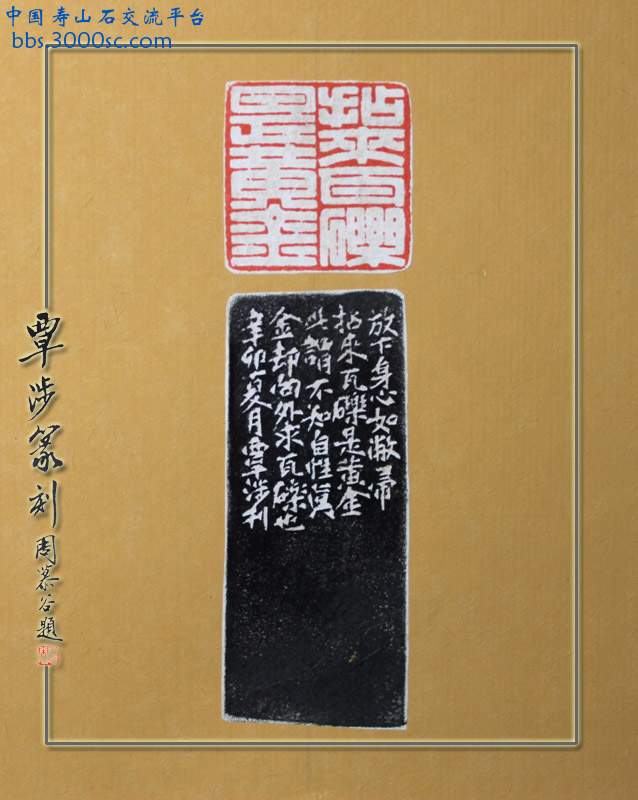 中国寿山石交流平台
bbs.3000sc.com
拈來瓦礫
是黃金
放下身心如敝帚
拈来瓦礫是黄金
此謂不知自性真
金却向外求瓦礫也
辛卯夏月覃涉刻
覃涉篆刻
周慕谷題